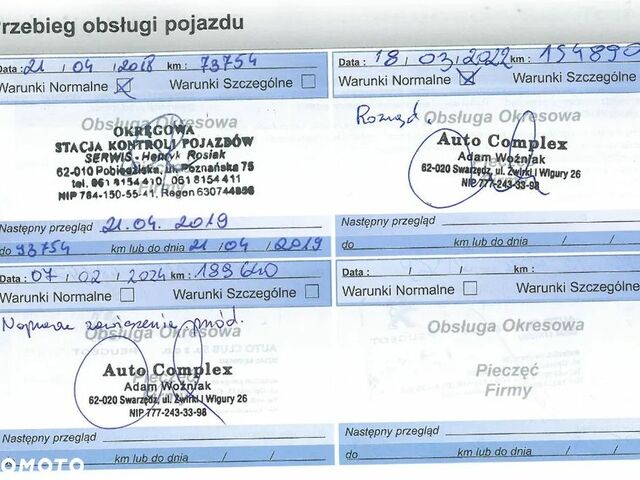 Przebieg obsługi pojazdu
Data : 21 / 04 / 2018 km : 73754
Warunki Normalne Warunki Szczególne
Obsługa Okresowa
OKRĘGOWA
STACJA KONTROLI POJAZDÓW
SERWIS - Henryk Rosiak
62-010 Pobiedziska, ul. Poznańska 75
tel. 061 8154410, 061 8154411
NIP 784-150-55-41, Regon 630744856
Firmy
Następny przegląd 21.04.2019
do 93754 km lub do dnia 21 / 04 / 2019
Data : 18 / 03 / 2022 km : 154890
Warunki Normalne Warunki Szczególne
Obsługa Okresowa
Rozrząd.
Auto Complex
Adam Woźniak
62-020 Swarzędz, ul. Żwirki i Wigury 26
NIP 777-243-33-98
Następny przegląd
do km lub do dnia / /
Data : 07 / 02 / 2024 km : 189640
Warunki Normalne Warunki Szczególne
Naprawa zawieszenia przód.
Obsługa Okresowa
Pieczęć
Auto Complex
Adam Woźniak
62-020 Swarzędz, ul. Żwirki i Wigury 26
NIP 777-243-33-98
Następny przegląd
km lub do dnia / /
Data : / / km :
Warunki Normalne Warunki Szczególne
Obsługa Okresowa
Pieczęć
Firmy
Następny przegląd
do km lub do dnia / /
OTOMOTO